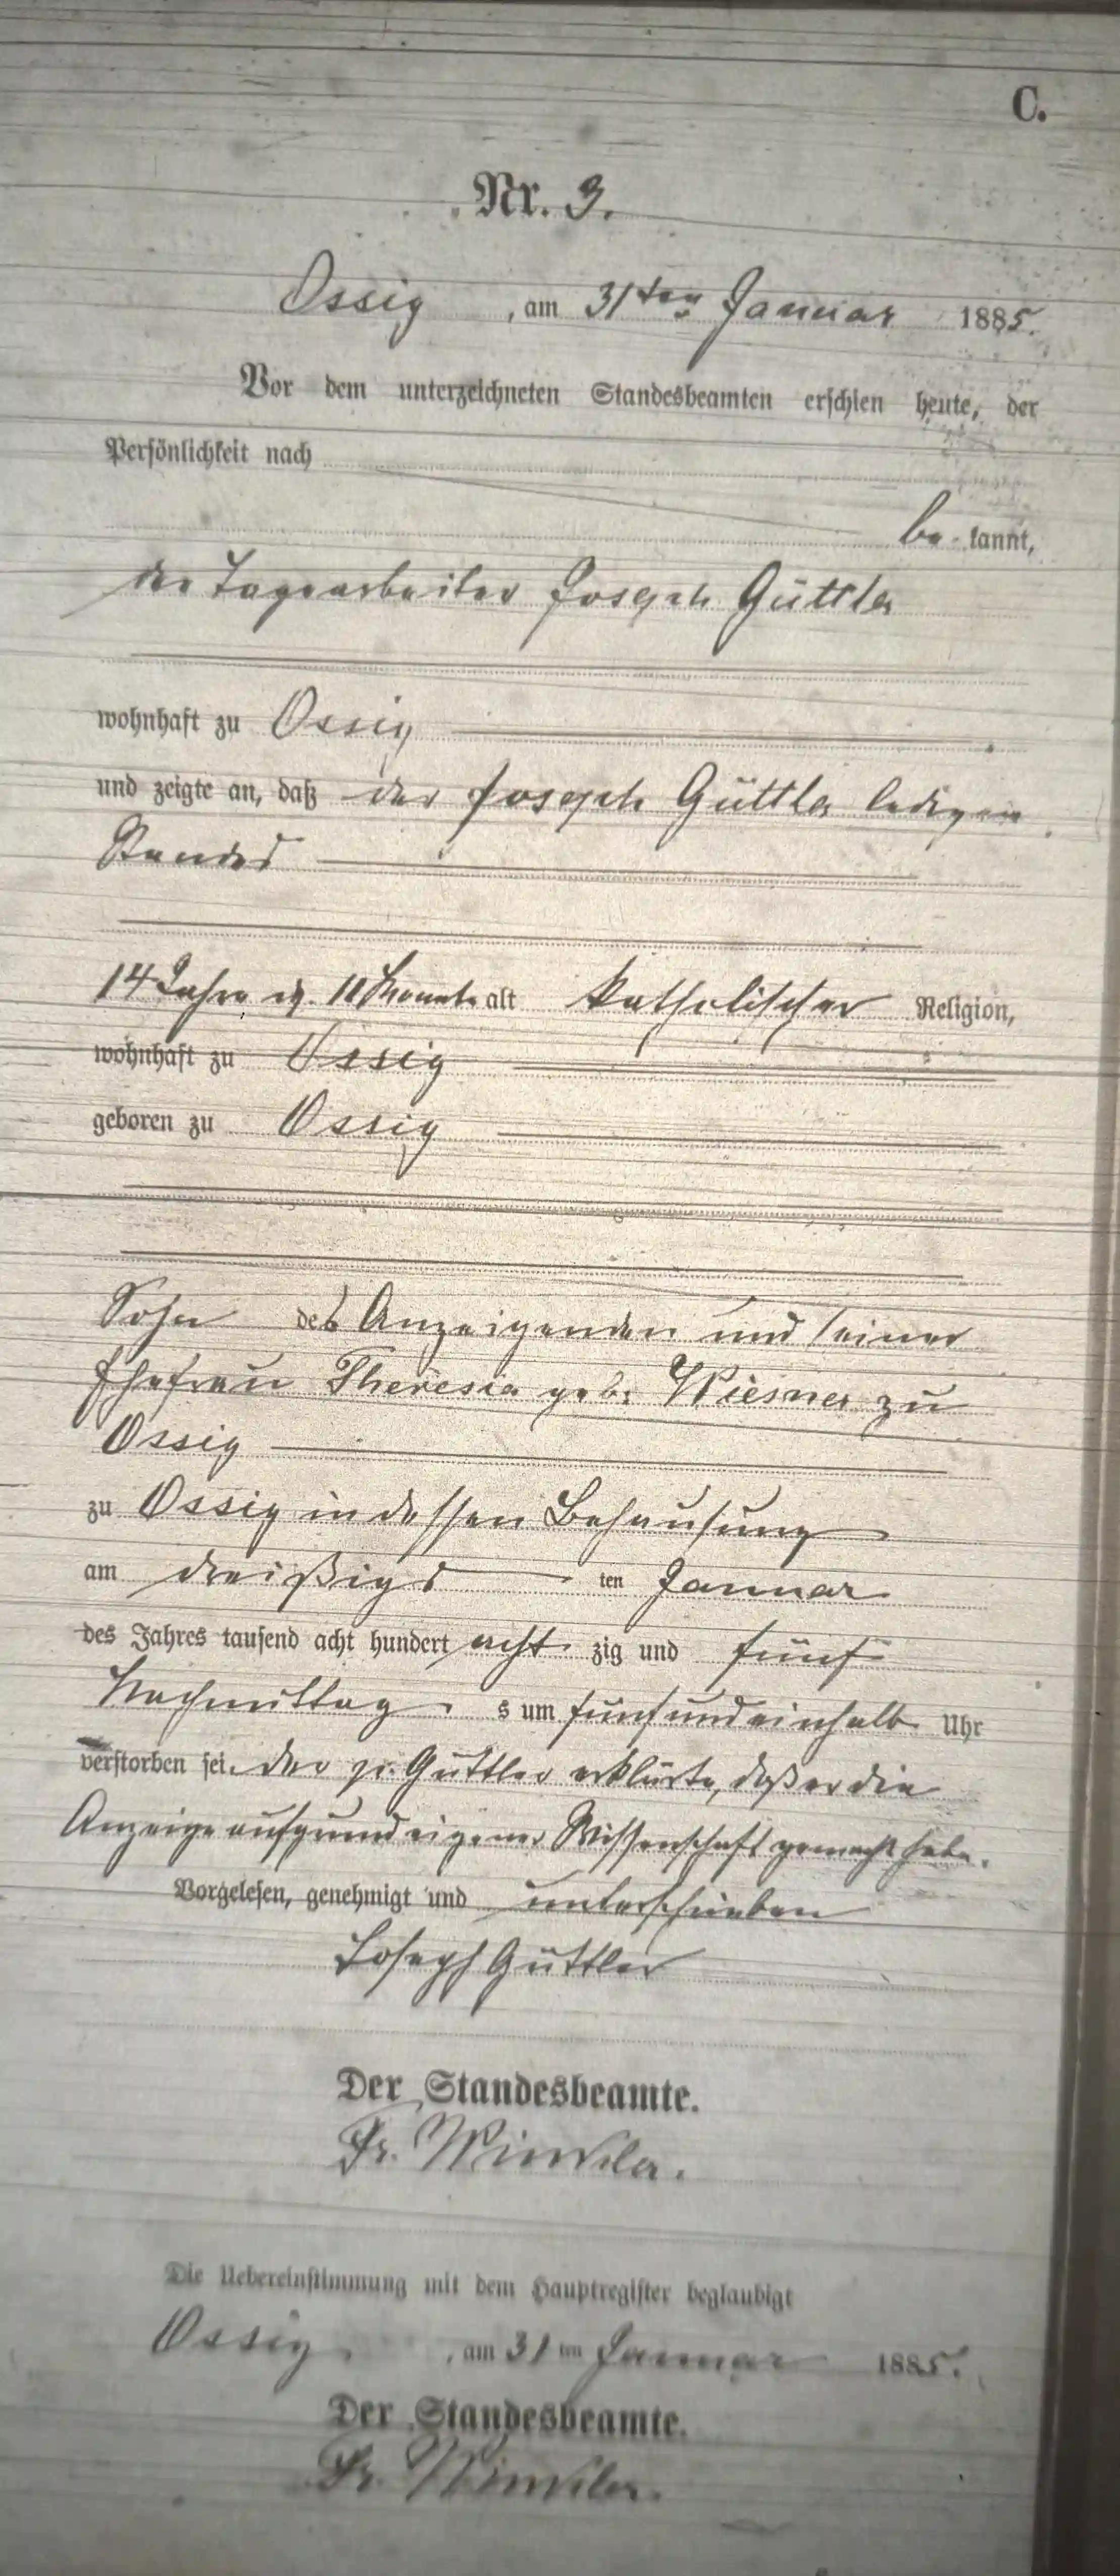 C.
Nr. 3.
Ossig, am 31ten Januar 1885.
Vor dem unterzeichneten Standesbeamten erschien heute, der
Persönlichkeit nach
be kannt,
der Tagearbeiter Joseph Güttler
wohnhaft zu Ossig
und zeigte an, daß der Joseph Güttler ledigen
Standes
14 Jahre u. 10 Monate alt katholischer Religion,
wohnhaft zu Ossig
geboren zu Ossig
Sohn des Anzeigenden und seiner
Ehefrau Theresia geb. Wiesner zu
Ossig
zu Ossig in dessen Behausung
am dreißigs ten Januar
des Jahres tausend acht hundert acht zig und fünf
Nachmittag s um fünf und einhalb Uhr
verstorben sei. Der p. Güttler erklärte, daß er die
Anzeige aufgrund eigener Wissenschaft gemacht habe.
Vorgelesen, genehmigt und unterschrieben
Joseph Güttler
Der Standesbeamte.
Fr. Winkler.
Die Uebereinstimmung mit dem Hauptregister beglaubigt
Ossig, am 31 ten Januar 1885.
Der Standesbeamte.
Fr. Winkler.